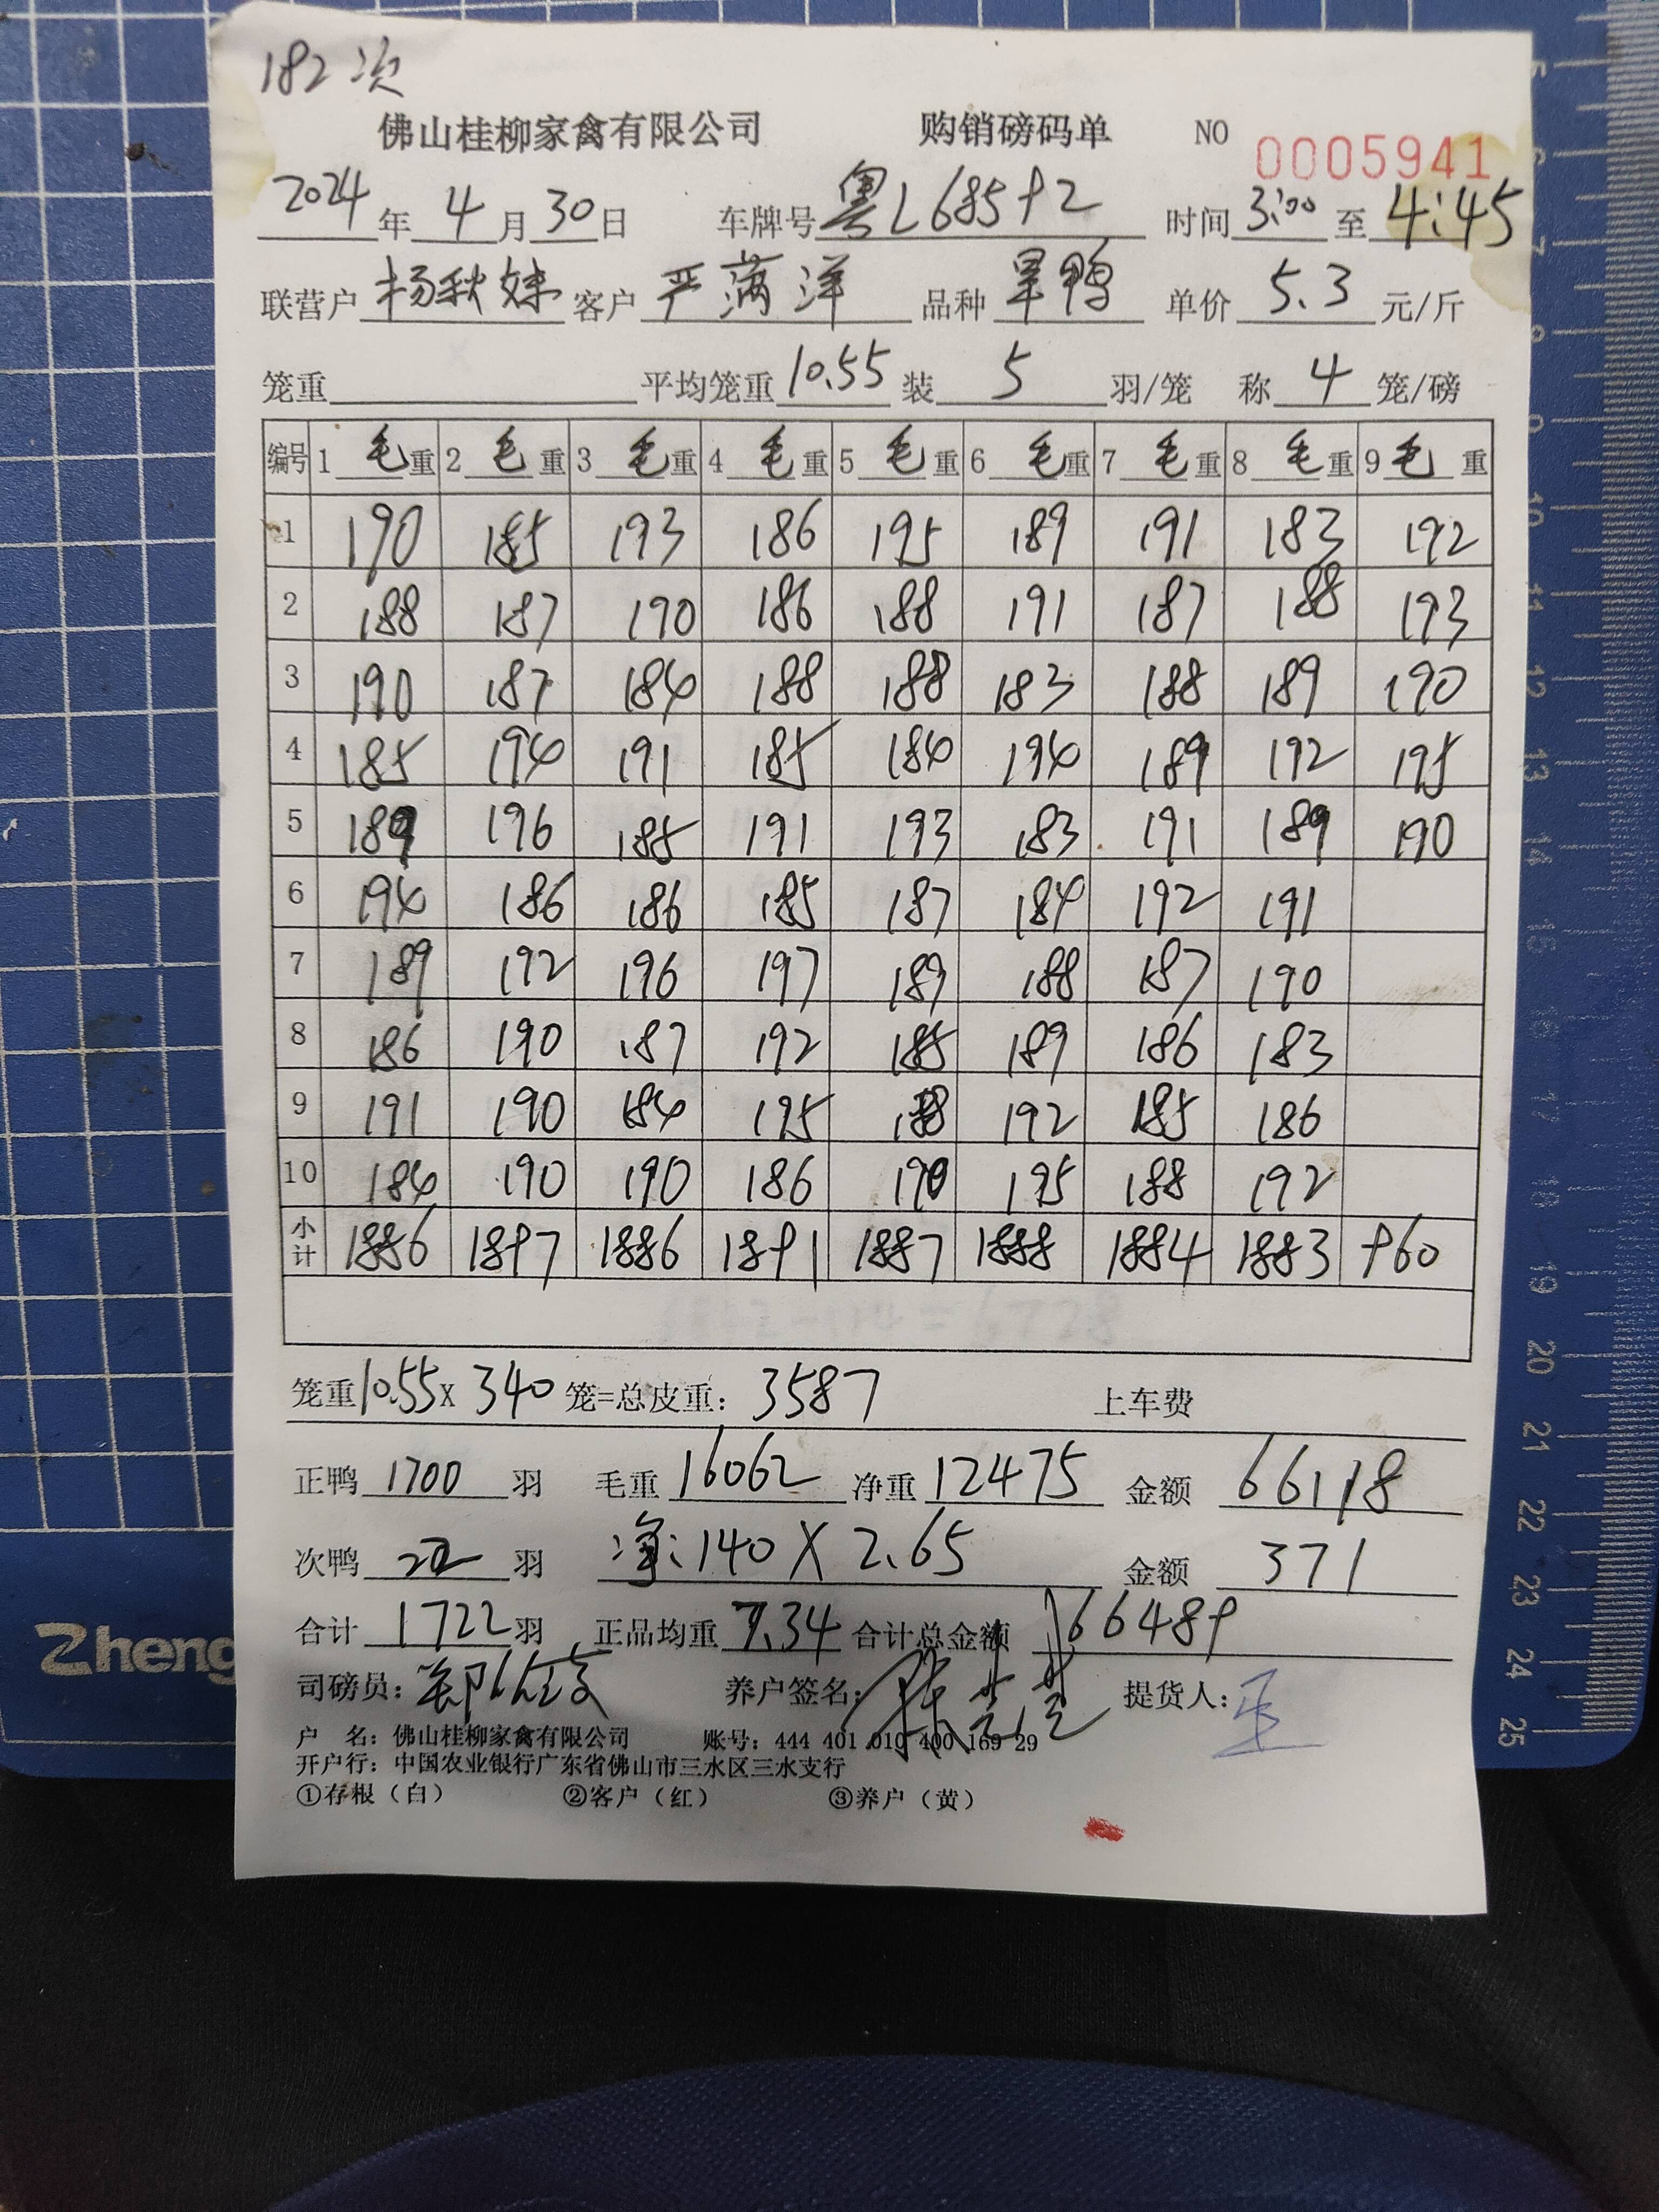 182次
佛山桂柳家禽有限公司 购销磅码单 NO 0005941
2024年4月30日 车牌号粤L68592 时间3:00至4:45
联营户杨秋妹 客户严满洋 品种旱鸭 单价5.3元/斤
笼重 平均笼重10.55 装5羽/笼 称4笼/磅
编号 1毛重 2毛重 3毛重 4毛重 5毛重 6毛重 7毛重 8毛重 9毛重
1 190 185 193 186 195 189 191 183 192
2 188 187 190 186 188 191 187 188 193
3 190 187 184 188 188 183 188 189 190
4 185 194 191 185 184 194 189 192 195
5 189 196 185 191 193 183 191 189 190
6 194 186 186 185 187 184 192 191
7 189 192 196 197 189 188 187 190
8 186 190 187 192 185 189 186 183
9 191 190 184 195 188 192 185 186
10 184 190 190 186 190 195 188 192
小计 1886 1897 1886 1891 1887 1888 1884 1883 960
笼重10.55x340笼=总皮重:3587 上车费
正鸭1700羽 毛重16062 净重12475 金额66118
次鸭22羽 净:140X2.65 金额371
合计1722羽 正品均重7.34 合计总金额66489
司磅员: 养户签名: 提货人:
户 名:佛山桂柳家禽有限公司 账号:444 401 010 400 169 29
开户行:中国农业银行广东省佛山市三水区三水支行
①存根(白) ②客户(红) ③养户(黄)
Zheng